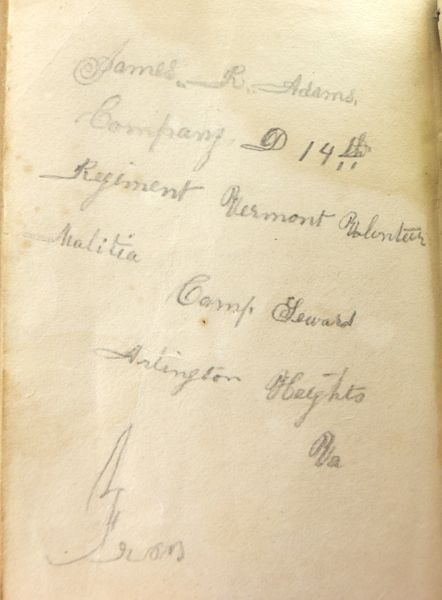 James. R. Adams.
Company. D 14th
Regiment Vermont Volunteer
Malitia
Camp Seward
Arlington Heights
Va